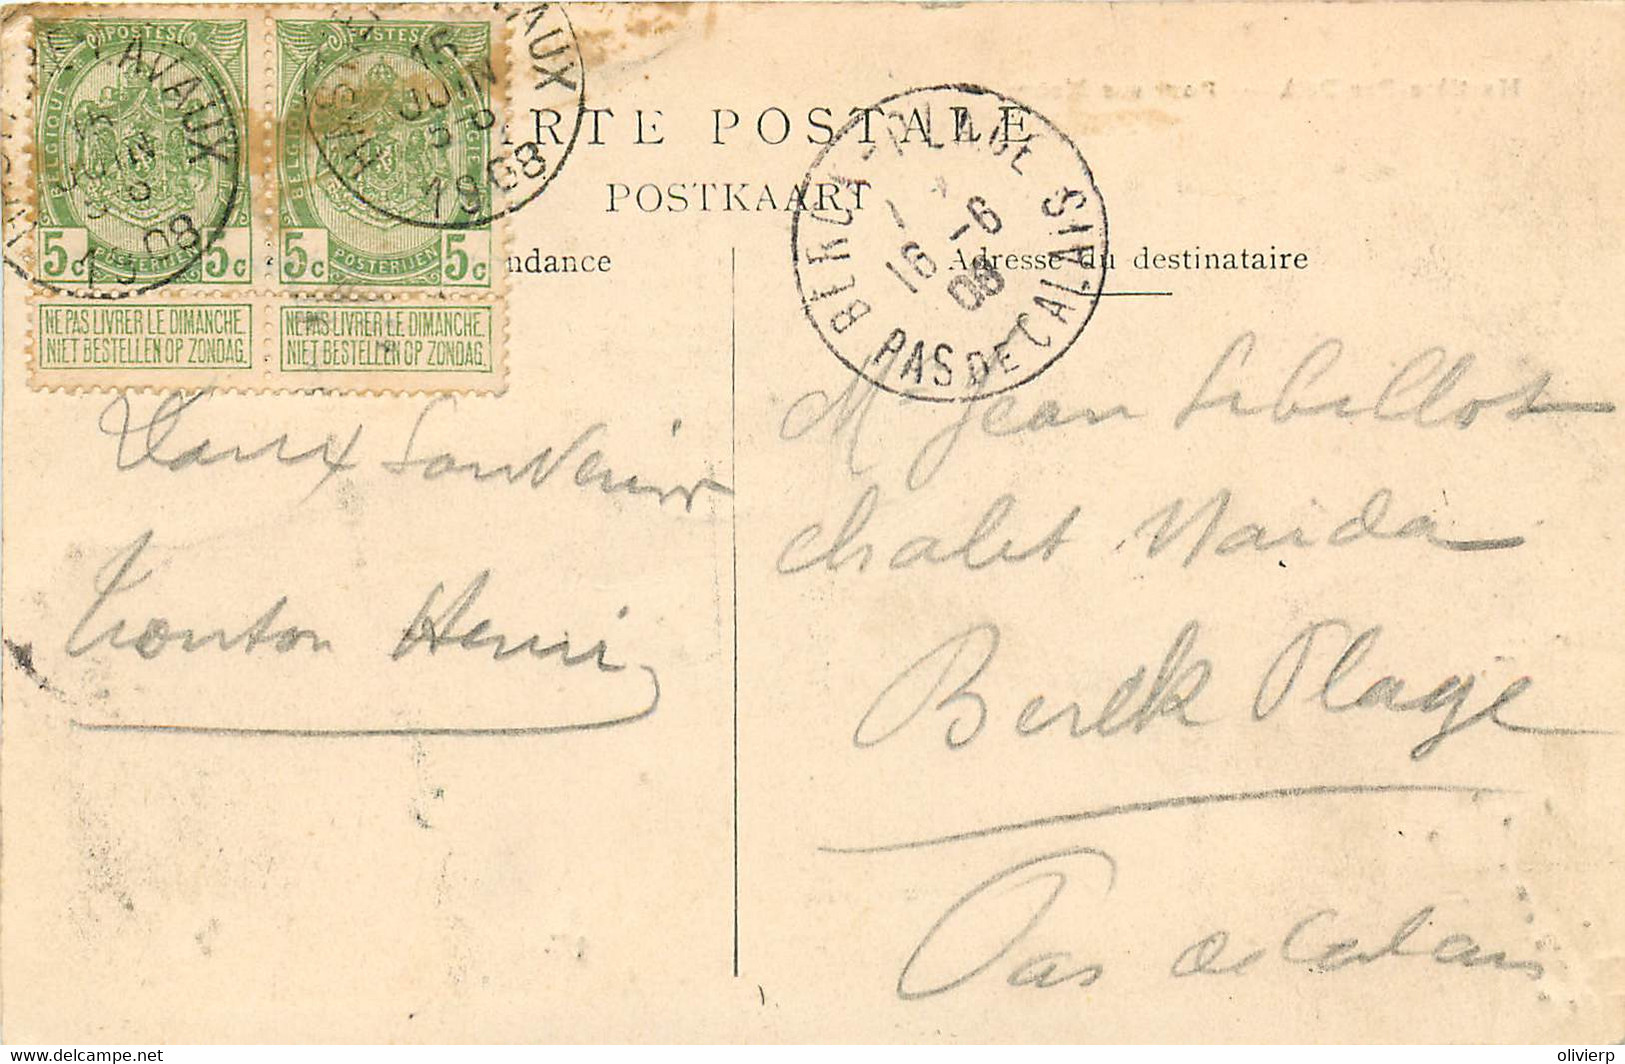 POSTES POSTES
BELGIQUE BELGIQUE BELGIE
5c 5c 5c 5c
POSTERIJEN POSTERIJEN
NE PAS LIVRER LE DIMANCHE. NE PAS LIVRER LE DIMANCHE.
NIET BESTELLEN OP ZONDAG. NIET BESTELLEN OP ZONDAG.
15
JUIN
1908
15
JUIN
1908
RTE POSTALE
POSTKAART
ndance
Adresse du destinataire
BERCK-PLAGE
16 -6
08
PAS DE CALAIS
Doux Souvenir
tonton Henri
Mr Jean Sebillot
Chalet Naida
Berck Plage
Pas de Calais
delcampe.net
olivierp